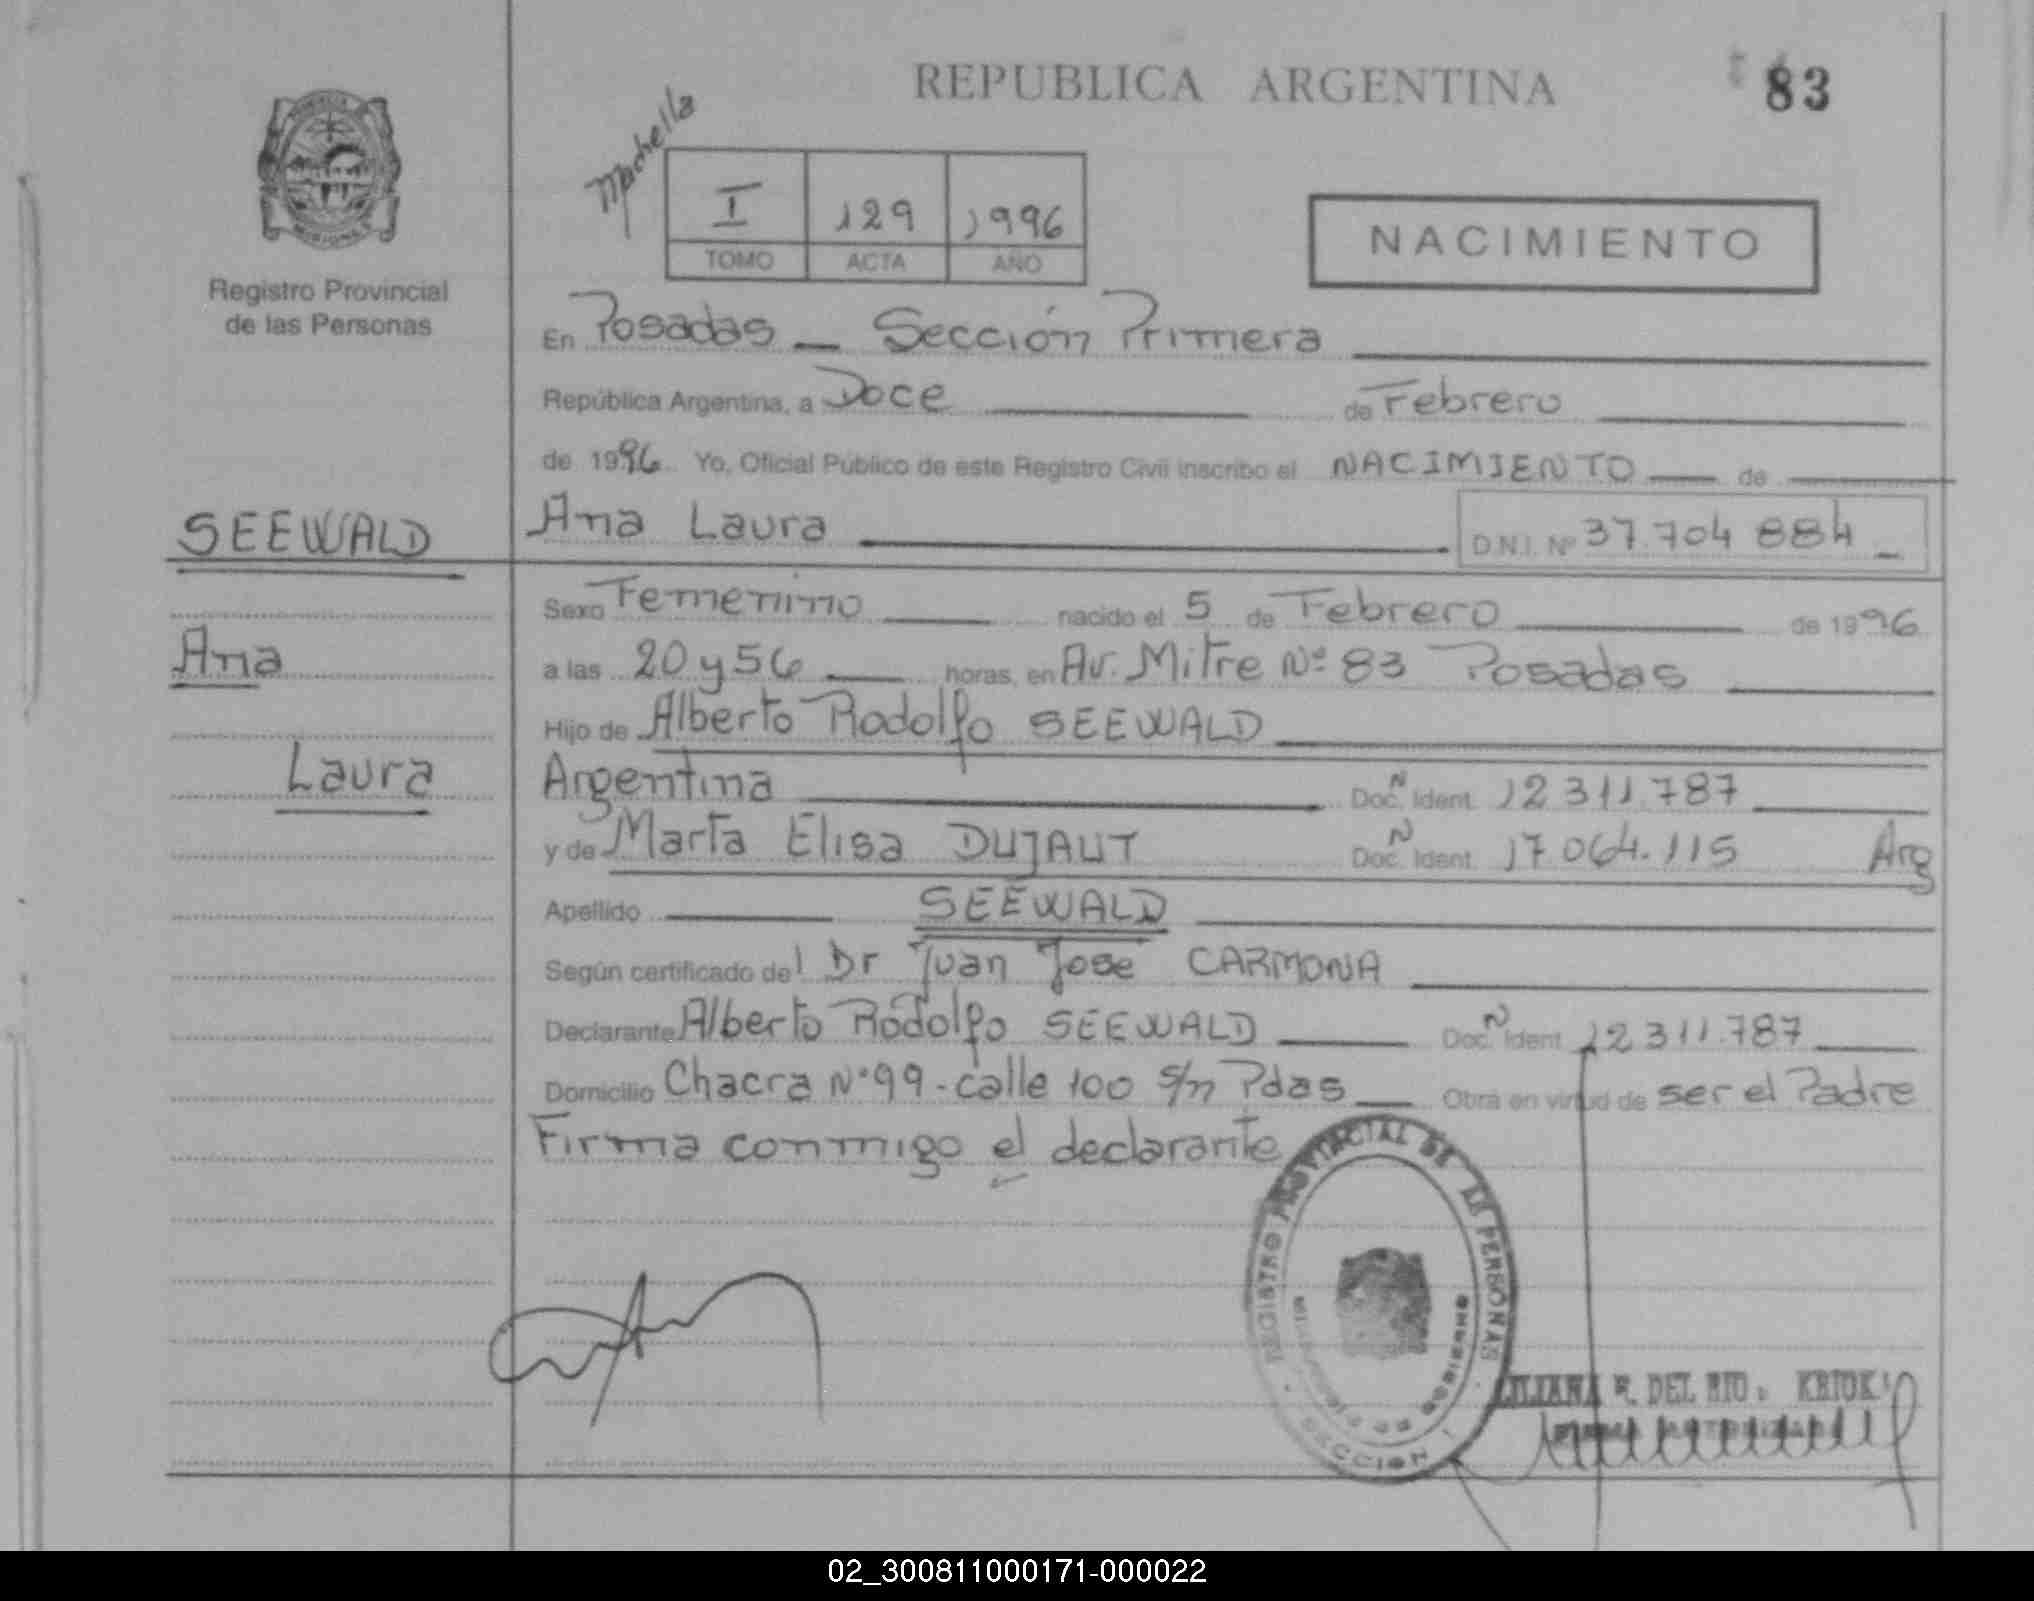 REPUBLICA ARGENTINA
83
I 129 1996
TOMO ACTA AÑO
NACIMIENTO
PROVINCIA
MISIONES
Registro Provincial
de las Personas
En Posadas — Sección Primera
República Argentina, a Doce de Febrero
de 1996 Yo, Oficial Público de este Registro Civil inscribo el NACIMIENTO de
SEEWALD
Ana
Laura
Ana Laura D.N.I. Nº 37.704 884
Sexo Femenino nacido el 5 de Febrero de 1996
a las 20 y 56 horas, en Av. Mitre Nº 83 Posadas
Hijo de Alberto Rodolfo SEEWALD
Argentina Doc. N Ident. 12 311.787
y de Marta Elisa DUJAUT Doc. N Ident. 17.064.115 Arg
Apellido SEEWALD
Según certificado del Dr Juan Jose CARMONA
Declarante Alberto Rodolfo SEEWALD Doc. N Ident. 12 311.787
Domicilio Chacra Nº 99 - calle 100 s/n Pdas Obra en virtud de ser el Padre
Firma conmigo el declarante
REGISTRO PROVINCIAL DE LAS PERSONAS
MINISTERIO DE GOBIERNO
SECCION 1
LILIANA DEL RIO
02_300811000171-000022